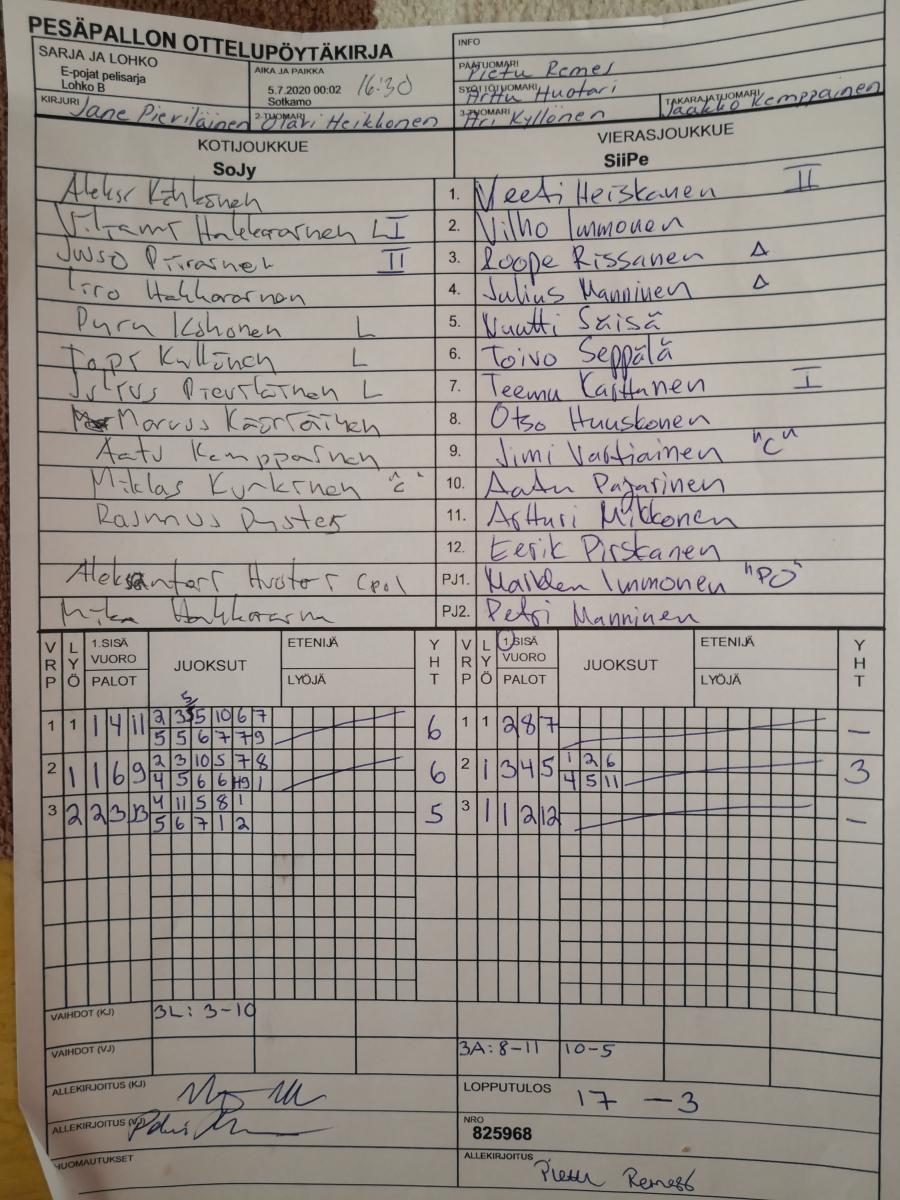 PESÄPALLON OTTELUPÖYTÄKIRJA
INFO
SARJA JA LOHKO
E-pojat pelisarja
Lohko B
AIKA JA PAIKKA
5.7.2020 00:02 16:30
Sotkamo
PÄÄTUOMARI
Pietu Remes
SYÖTTÖTUOMARI
Arttu Huotari
KIRJURI
Jane Pieviläinen
2-TUOMARI
Otavi Heikkonen
3-TUOMARI
Ari Kyllönen
TAKARAJATUOMARI
Jaakko Kemppainen
KOTIJOUKKUE
SoJy
VIERASJOUKKUE
SiiPe
1. Veeti Heiskanen II
L I 2. Vilho Immonen
Juuso Piirainen II 3. Roope Rissanen Δ
Iiro Hakkarainen 4. Julius Manninen Δ
Kähönen L 5. Nuutti Säisä
Topi Kyllönen L 6. Toivo Seppälä
Julius L 7. Teemu Karttunen I
Marcus Kääriäinen 8. Otso Huuskonen
Aatu Kemppainen 9. Jimi Vartiainen "C"
Miklas Kurkinen "c" 10. Aatu Pajarinen
Rasmus 11. Artturi Mikkonen
12. Eerik Pirskanen
PJ1. Immonen "PO"
Mika PJ2. Petri Manninen
VRP LYÖ 1.SISÄ VUORO PALOT JUOKSUT ETENIJÄ LYÖJÄ YHT VRP LYÖ 1.SISÄ VUORO PALOT JUOKSUT ETENIJÄ LYÖJÄ YHT
1 1 1 4 11 2 3 5 10 6 7 6 1 1 2 8 7 –
5 5 6 7 7 9
2 1 1 6 9 2 3 10 5 7 8 6 2 1 3 4 5 1 2 6 3
4 5 6 6 1 4 5 11
3 2 2 3 4 11 5 8 1 5 3 1 1 2 12 –
5 6 7 1 2
VAIHDOT (KJ) 3L: 3-10
VAIHDOT (VJ) 3A: 8-11 10-5
ALLEKIRJOITUS (KJ)
LOPPUTULOS 17 – 3
ALLEKIRJOITUS (VJ)
NRO
825968
HUOMAUTUKSET
ALLEKIRJOITUS